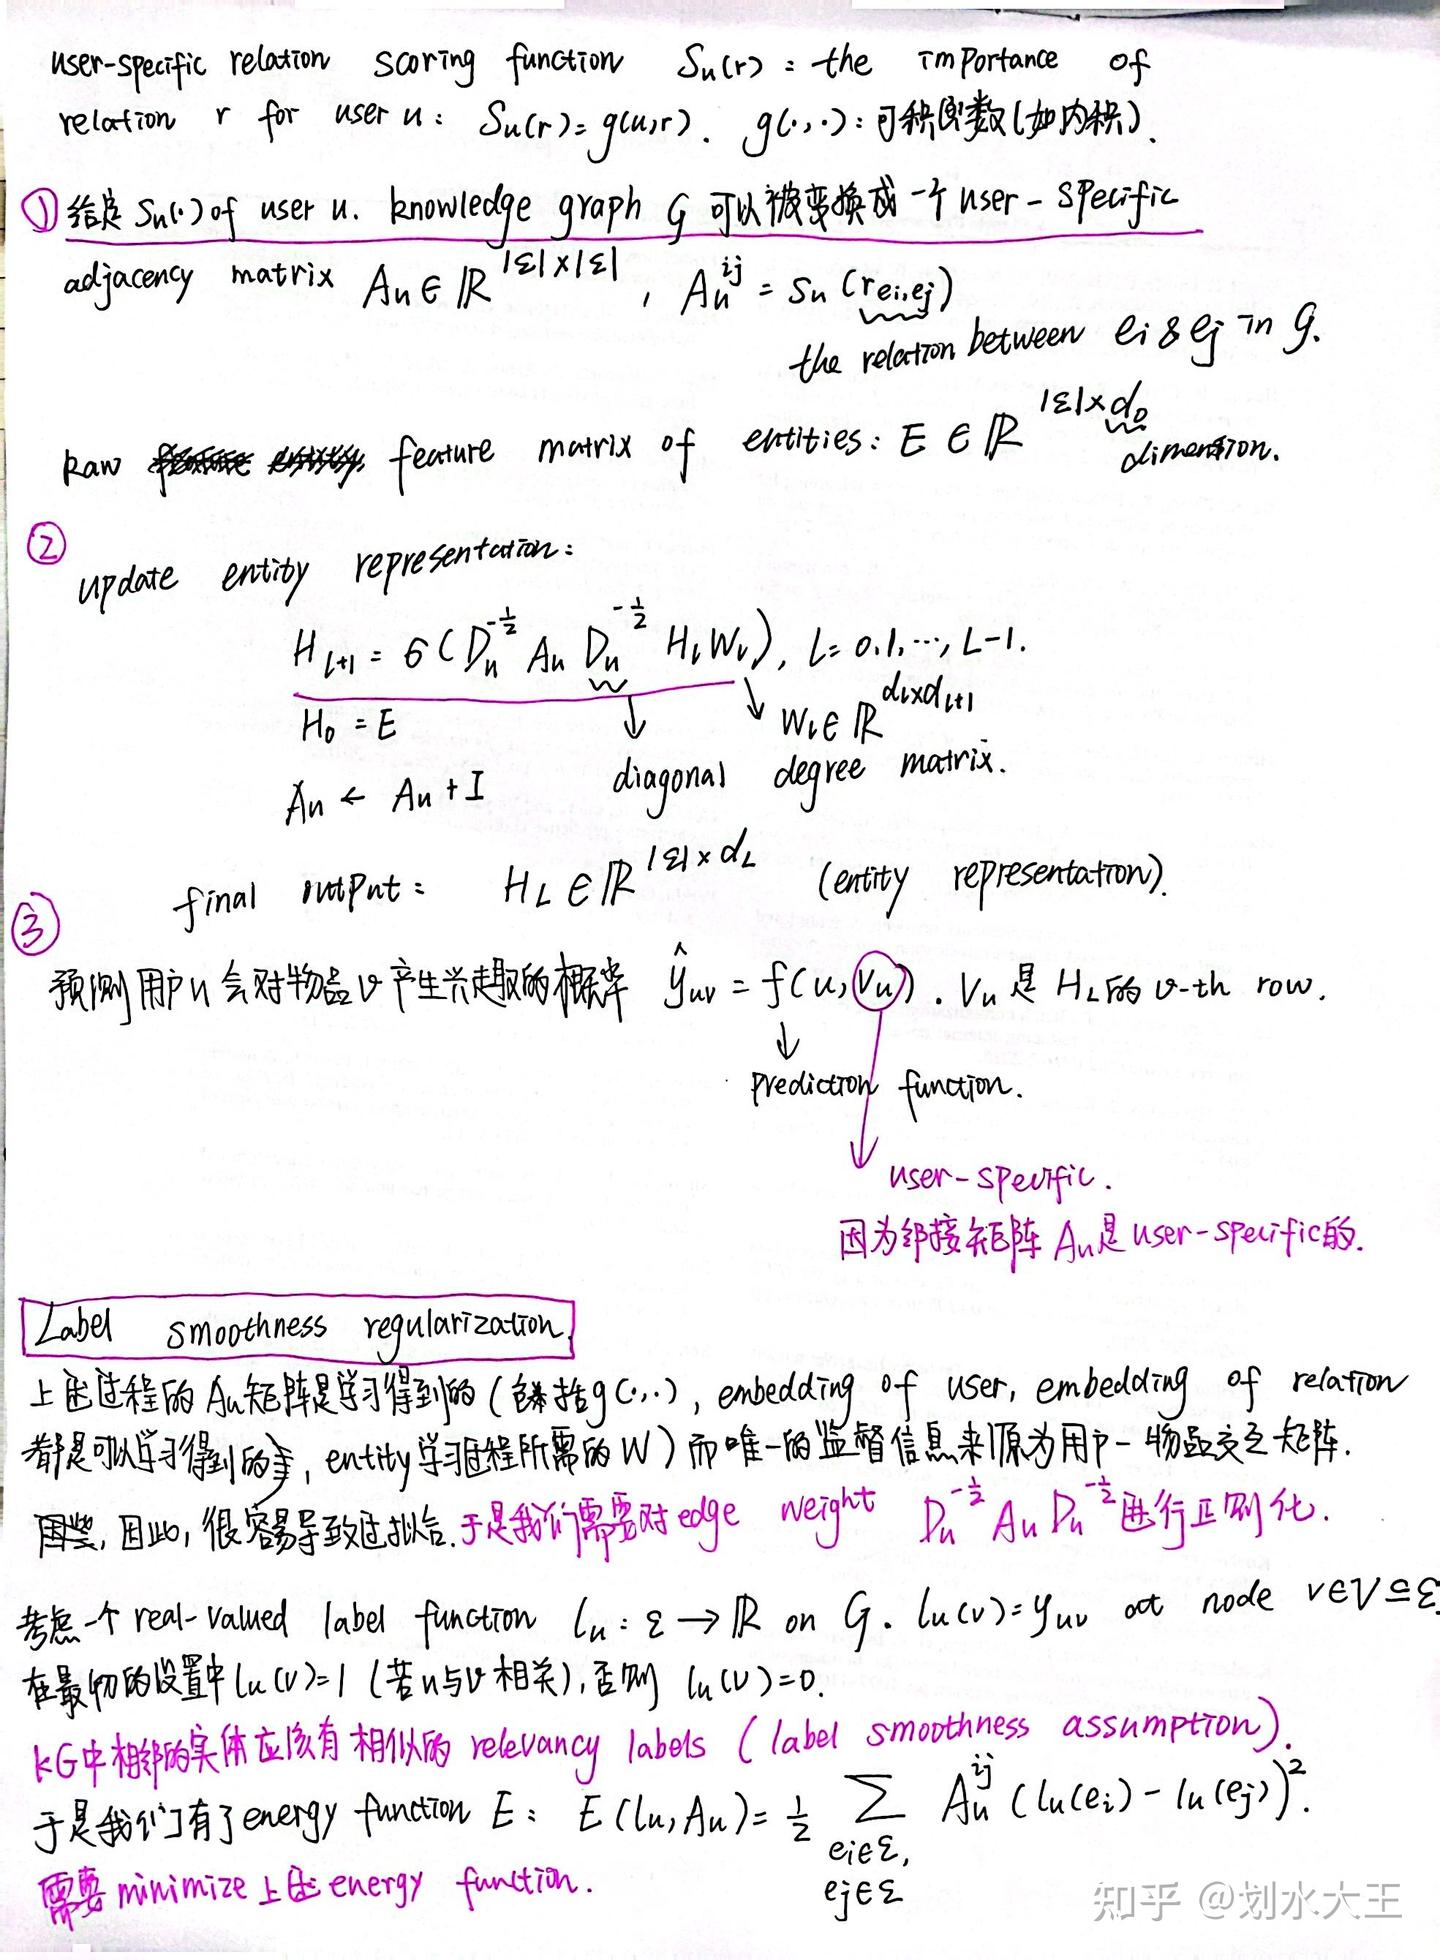 user-specific relation scoring function Su(r) = the importance of
relation r for user u: Su(r)=g(u,r). g(·,·): 可积函数(如内积).
① 给定 Su(·) of user u. knowledge graph G 可以被变换成一个 user-specific
adjacency matrix Au∈ℝ^{|ε|×|ε|}, Au^{ij} = Su(r_{ei,ej})
the relation between ei & ej in G.
Raw feature matrix of entities: E ∈ ℝ^{|ε|×d0}
dimension.
②
update entity representation:
H_{l+1} = σ(Du^{-1/2} Au Du^{-1/2} Hl Wl), l=0,1,…,L-1.
H0 = E
Wl∈ℝ^{dl×dl+1}
Au ← Au+I
diagonal degree matrix.
final output: HL∈ℝ^{|ε|×dL} (entity representation).
③
预测用户u会对物品v产生兴趣的概率 ŷuv = f(u,Vu). Vu是HL的v-th row.
prediction function.
user-specific.
因为邻接矩阵Au是user-specific的.
Label smoothness regularization.
上述过程的Au矩阵是学习得到的(包括g(·,·), embedding of user, embedding of relation
都是可以学习得到的, entity学习过程所需的W)而唯一的监督信息来源为用户-物品交互矩阵.
因此,很容易导致过拟合.于是我们需要对edge weight Du^{-1/2} Au Du^{-1/2}进行正则化.
考虑一个real-valued label function lu: ε→ℝ on G. lu(v)=yuv at node v∈V⊆ε.
在最初的设置中lu(v)=1(若u与v相关),否则lu(v)=0.
KG中相邻的实体应该有相似的relevancy labels (label smoothness assumption).
于是我们有了energy function E: E(lu,Au)=½ ∑ Au^{ij}(lu(ei)-lu(ej))².
ei∈ε,
ej∈ε
需要minimize上述energy function.
知乎 @划水大王